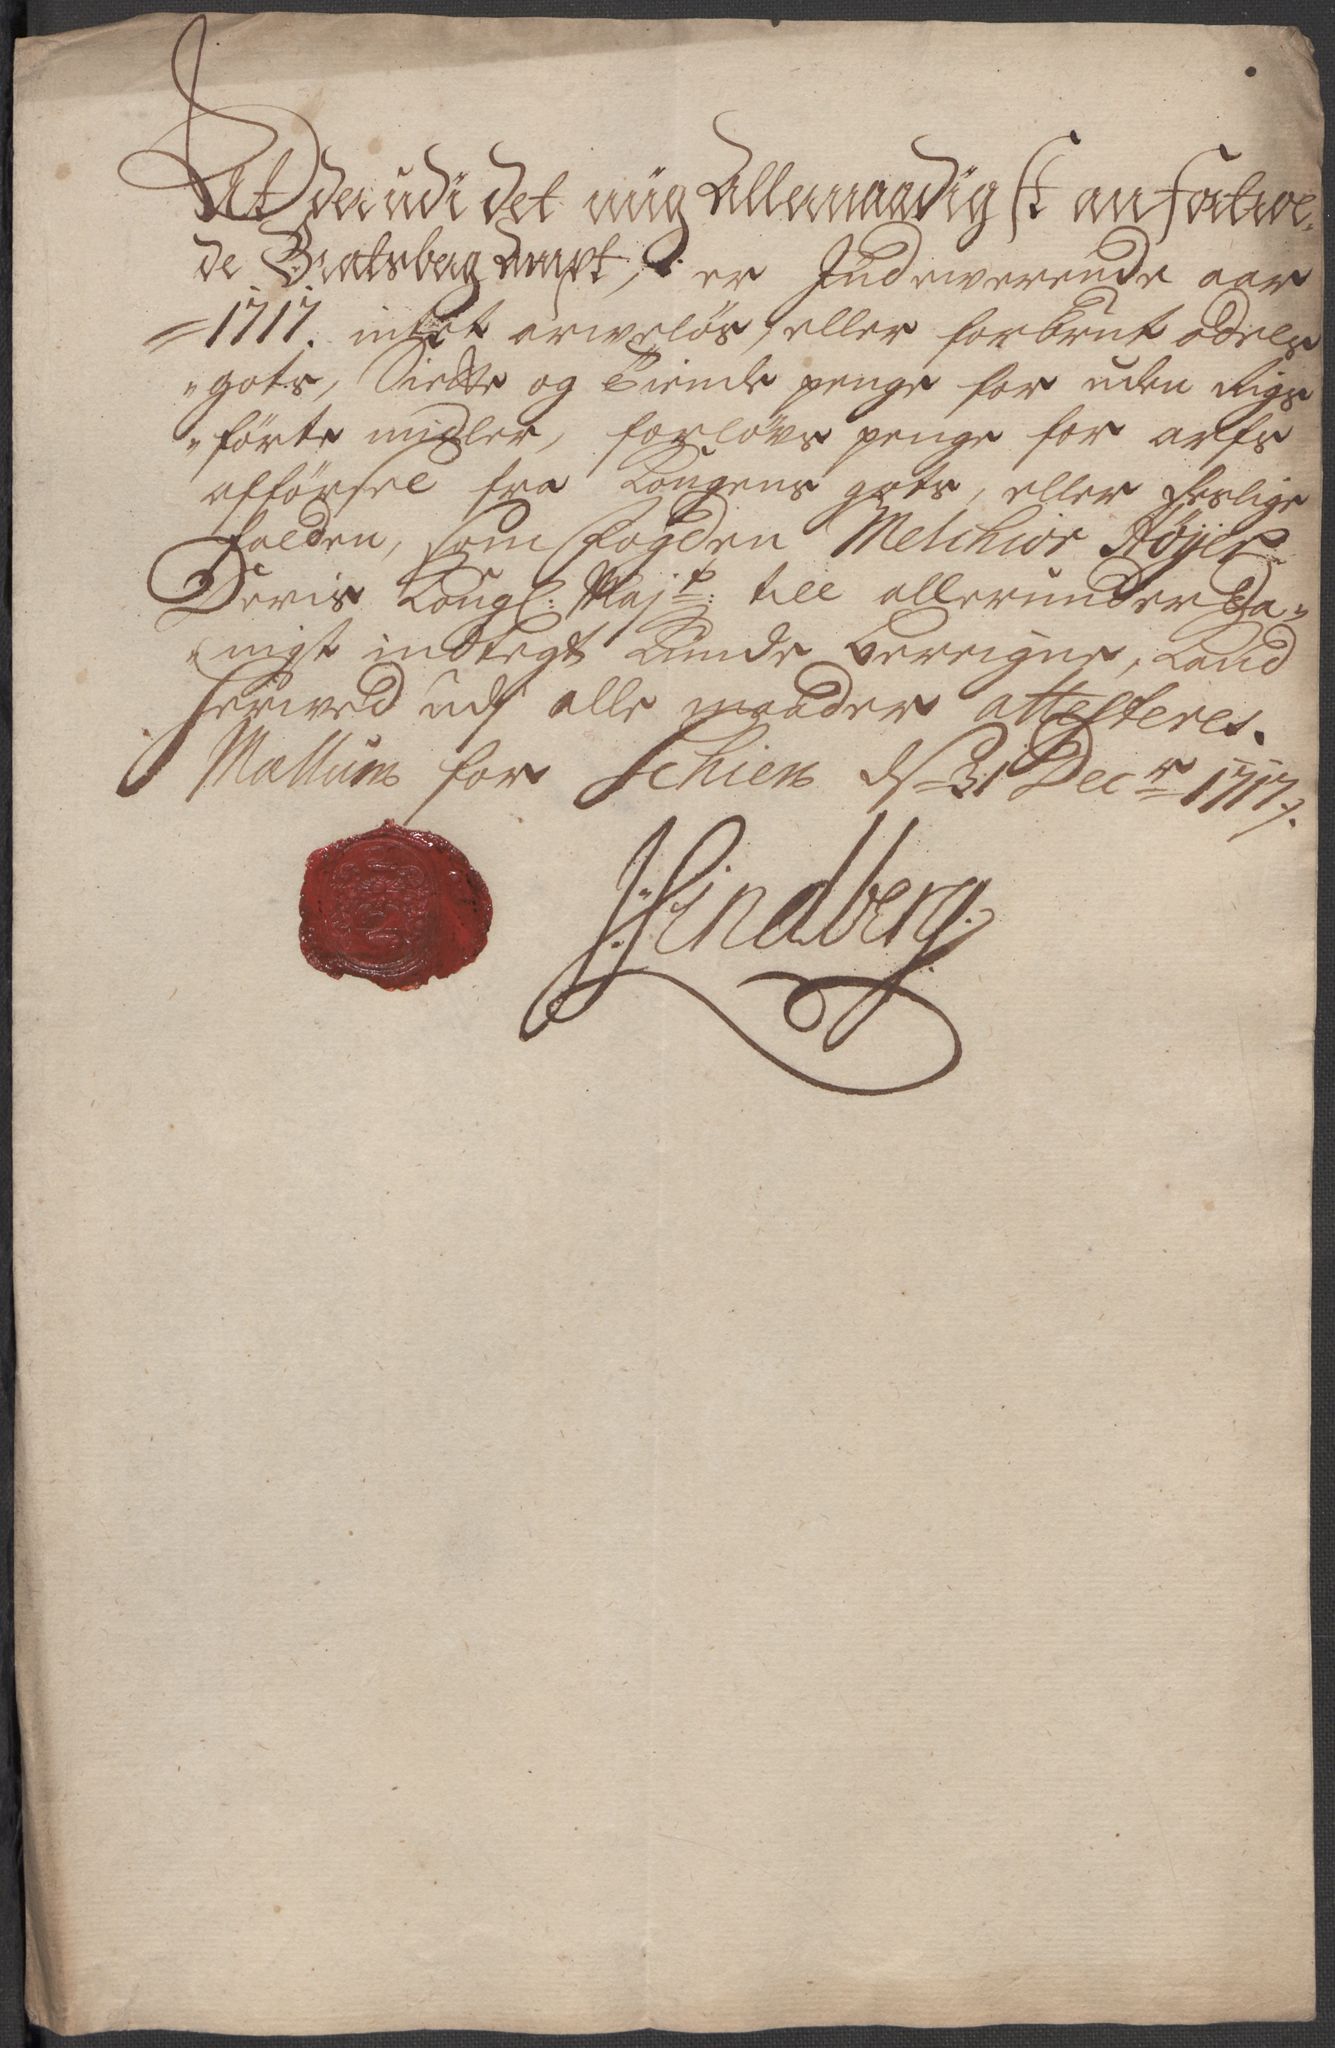 At der udi det mig Allernaadigst anfortroe,
de Bratsberg Ampt, er Indeverende aar
1717. intet arveløs, eller forbrut odels
gots, Siette og Tiende penge for uden Rigs
førte midler, forlovs penge for arfs
afførsel fra Kongens gots, eller
falden, som fogden Melchior Høyer
Deris Kongl: Maj:tt till allerunderda,,
nigst indtegt Kunde beregne,
herved udj alle maader attesteres.
Mællum for Schien d: 31 Decr 1717.
J: Lindberg.